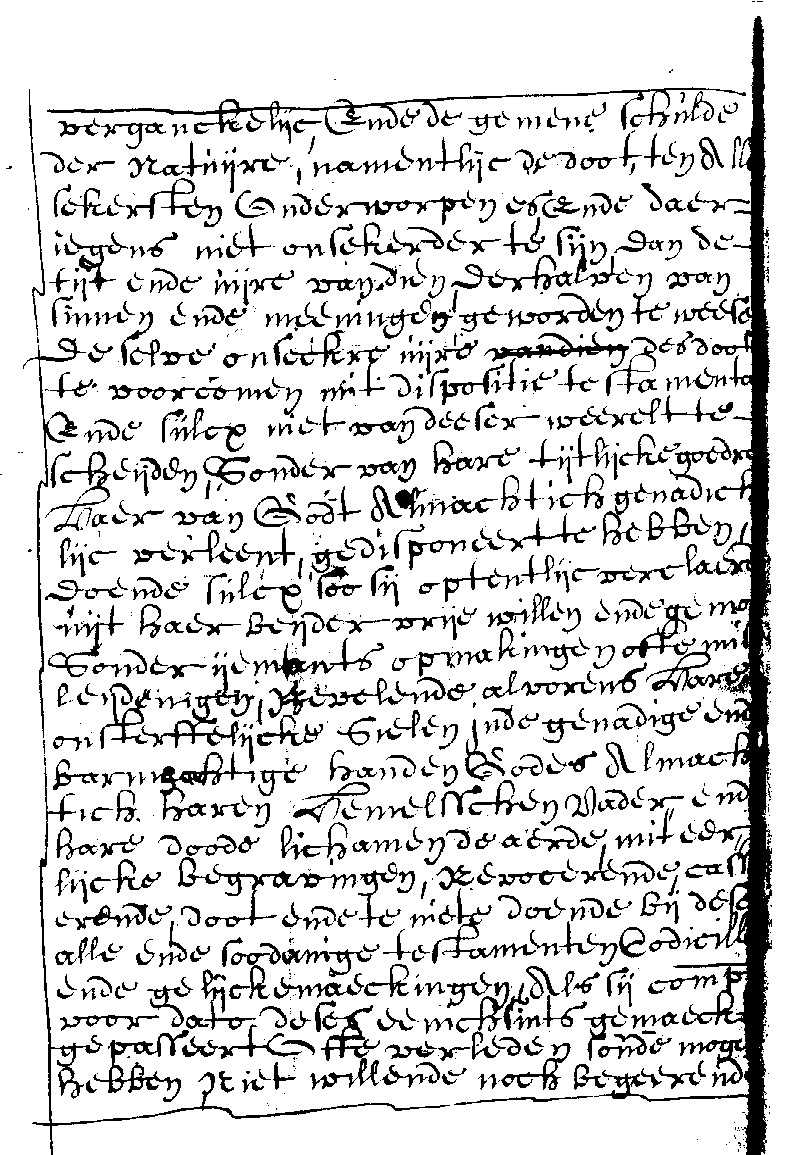 verganckelijc, Ende de gemene schulde
der Natuijre, namentlijc de doot, ten All
sekersten Onderworpen es, Ende daer-
iegens niet onsekerder te sijn, dan de-
tijt ende uijre van dien, Derhalven van
sinnen ende meeningen geworden te weese
De selve onseekre uijre vandien des doot
te voorcomen mit dispositie testamenta
Ende sulcx niet van deeser weerelt te-
scheijden, Sonder van hare tijtlijcke goedre
Haer van Godt Almachtich genadich
lijc verleent, gedisponeert te hebben,
Doende sulcx soo sij optentlijc verclaerd
uijt haer beijder vrije willen ende gemo
Sonder ijemants opmakingen ofte mis
leijdenigen, Bevelende alvorens Hare
onsterffelijcke Sielen, inde genadige end
barmhachtige handen Godes Almach
tich haren Hemelsschen Vader, end
hare doode lichamen de aerde, mit eer
lijcke begravingen, Revocerende, cass
erende, doot ende te niete doende bij dese
alle ende soodanige testamenten Codicill
ende gelijckemaeckingen, Als sij comp
voor dato deses eenichsints gemaeckt
gepasseert Ofte verleden sonde moge
hebben Niet willende noch begeerende